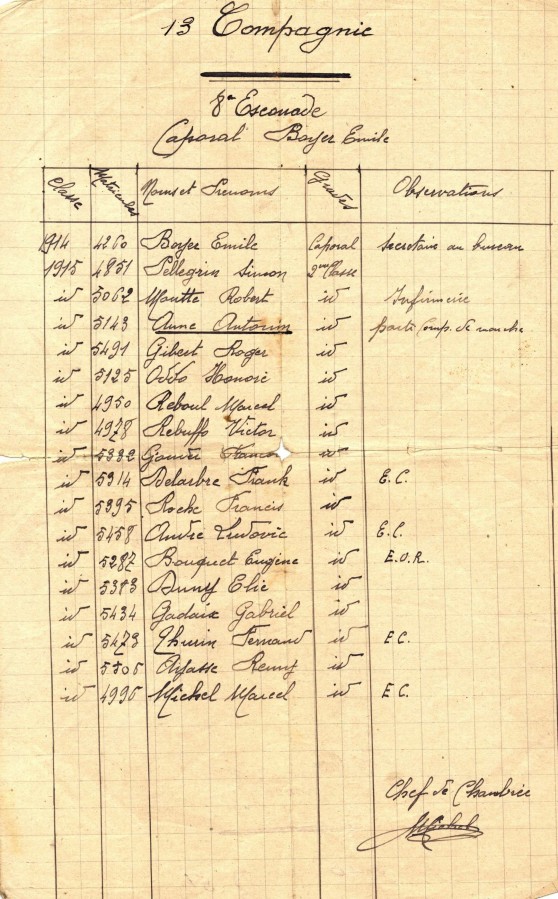 13 Compagnie
8e Escouade
Caporal Boyer Emile
Classe Matricules Noms et Prenoms Grades Observations
1914 4260 Boyer Emile Caporal Secretaire au bureau
1915 4851 Pellegrin Simon 2eme Classe
id 5062 Moutte Robert id Infirmerie
id 5143 Aune Antonin id parti Comp. de marche
id 5491 Gibert Roger id
id 5125 Oddo Honoré id
id 4950 Reboul Marcel id
id 4978 Rebuffo Victor id
id 5332 id
id 5914 Delarbre Frank id E.C.
id 5395 Roche Francis id
id 5458 André Ludovic id E.C.
id 5287 Bouquet Eugène id E.O.R.
id 5383 Elie id
id 5434 Gadaix Gabriel id
id 5473 Thurin Fernand id E.C.
id 5505 Remy id
id 4995 Michel Marcel id E.C.
Chef de Chambrée
Michel